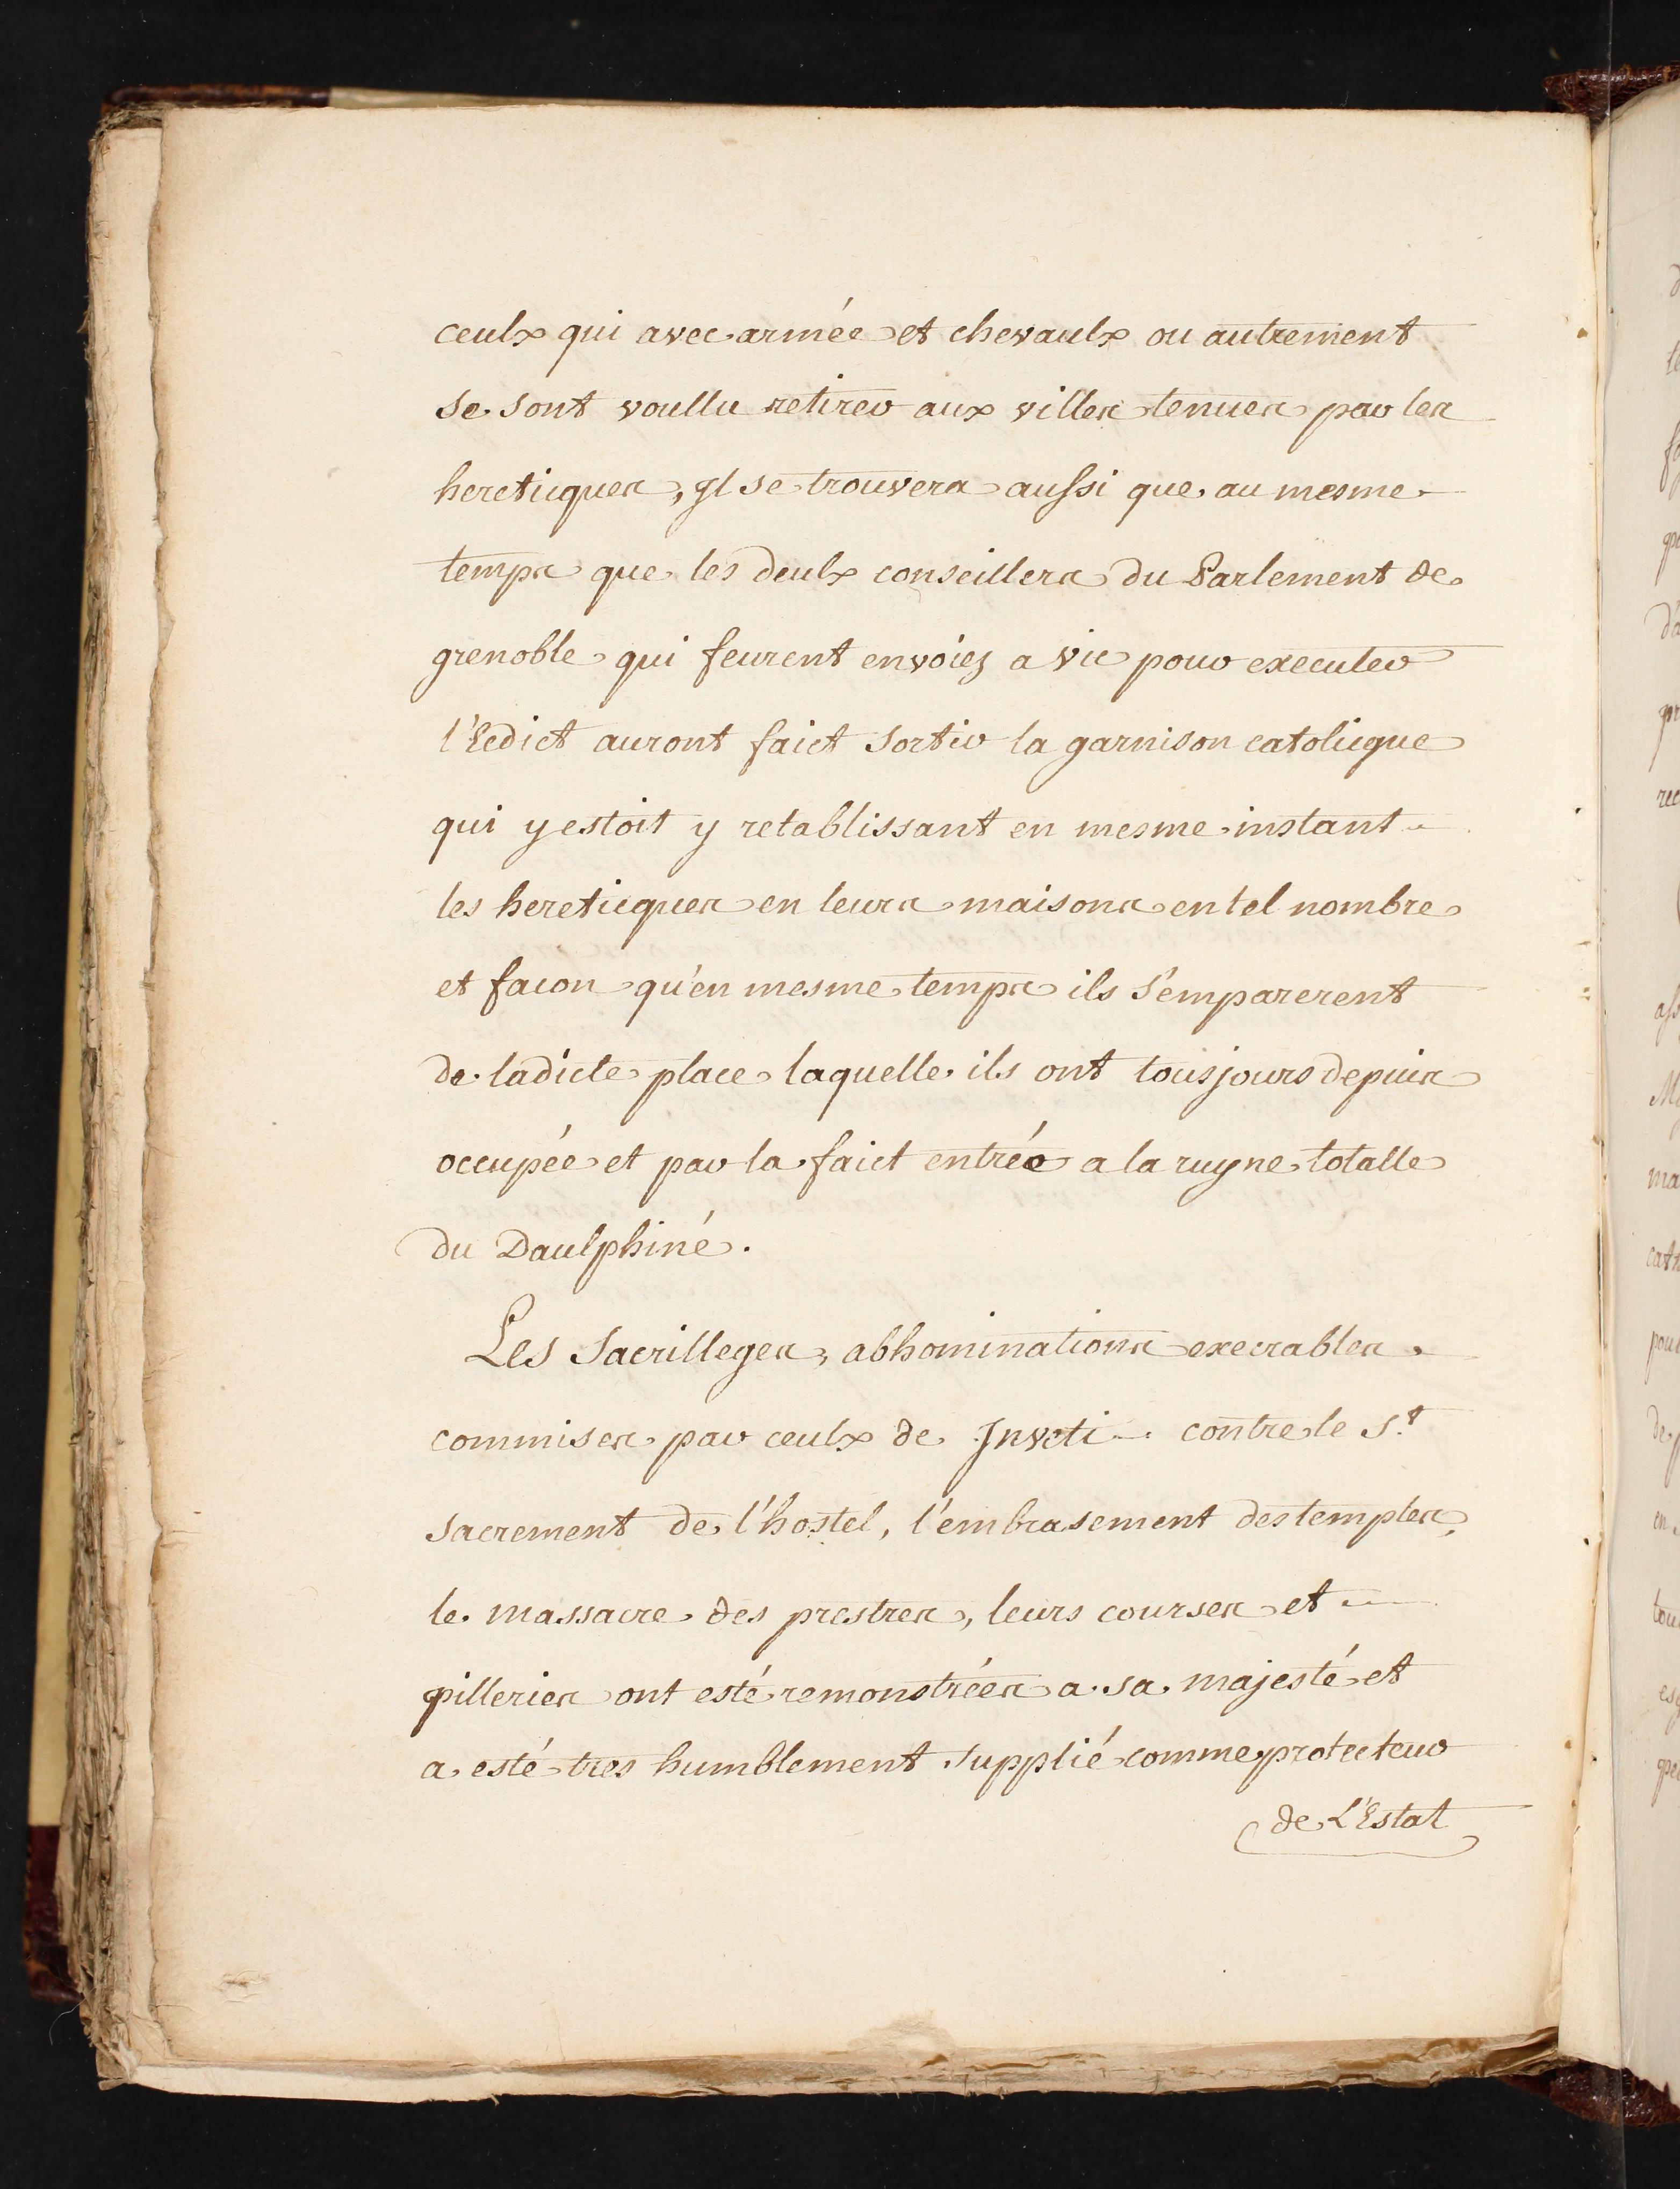 ceulx qui avec armée et chevaulx ou autrement
se sont voullu retirer aux villes tenues par les
hereticques, yl se trouvera aussi que au mesme
temps que les deulx conseillers du Parlement de
grenoble qui feurent envoiez a vic pour executer
l'Eedict auront faict sortir la garnison catolicque
qui y estoit y retablissant en mesme instant
les hereticques en leurs maisons en tel nombre
et facon qu'en mesme temps ils s'emparerent
de ladicte place laquelle ils ont tousjours depuis
occupée et par la faict entrée a la ruyne totalle
du Daulphiné.
Les Sacrilleges, abhominations execrables
commises par ceulx de Inveti contre le St.
sacrement de l'hostel, l'embrasement des temples,
le massacre des prestres, leurs courses et
pilleries ont esté remonstrées a sa majesté et
a esté tres humblement supplié comme protecteur
de L'Estat